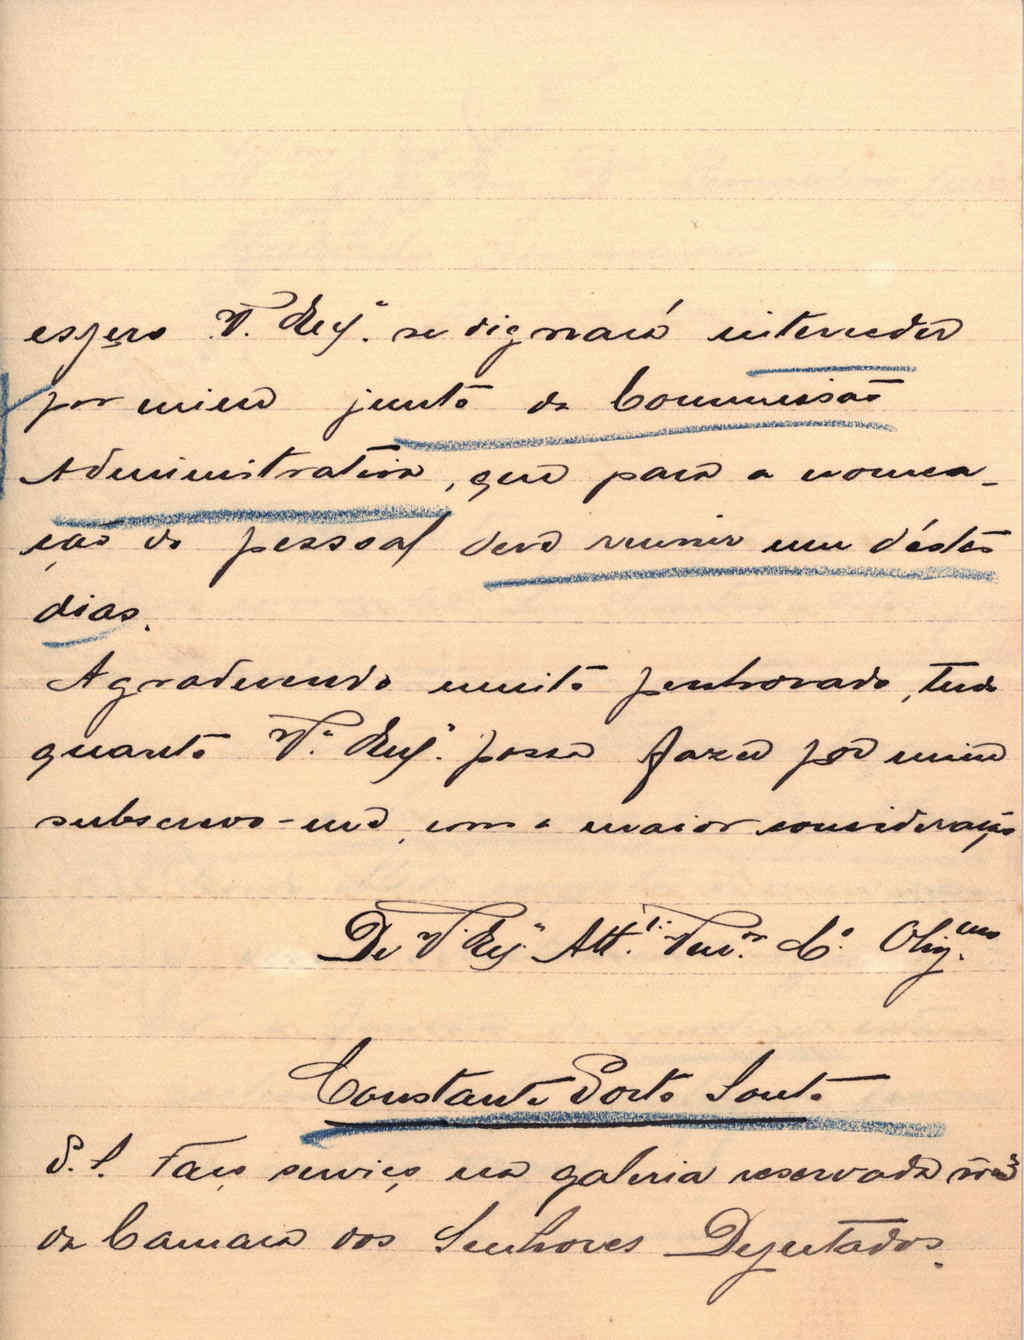 espero V. Exª. se dignará interceder
por mim junto da Commissão
Administrativa, que para a nomea-
ção do pessoal deve reunir um d'éstes
dias.
Agradecendo muito penhorado, tudo
quanto Vª. Exª. possa fazer por mim
subscrevo-me, com a maior consideração
De V. Exª Attº. Venºr. Cº. Obrigmo
Constante Porto Santo
P. S. Faço serviço na galeria reservada nº 3
da Camara dos Senhores Deputados.